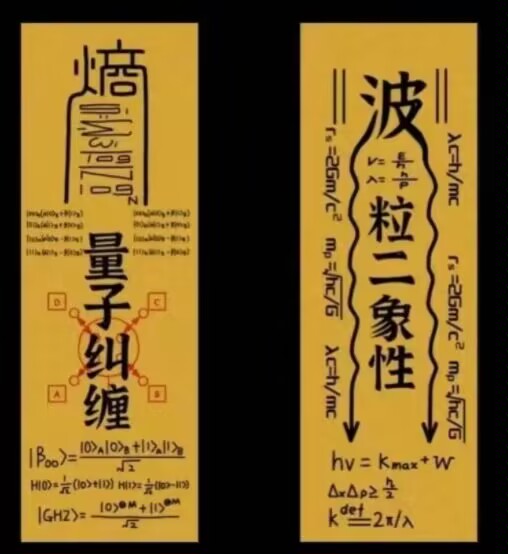 熵
量子纠缠
D
C
A
B
|β₀₀⟩=|0⟩A|0⟩B+|1⟩A|1⟩B/√2
H|0⟩=1/√2(|0⟩+|1⟩) H|1⟩=1/√2(|0⟩-|1⟩)
|GHZ⟩=|0⟩⊗M+|1⟩⊗M/√2
波粒二象性
ν=E/h
λ=h/p
rs=2Gm/c²
mp=√hc/G
λc=h/mc
λc=h/mc
rs=2Gm/c²
mp=√hc/G
hν=Kmax+W
ΔxΔp≥ħ/2
k def= 2π/λ